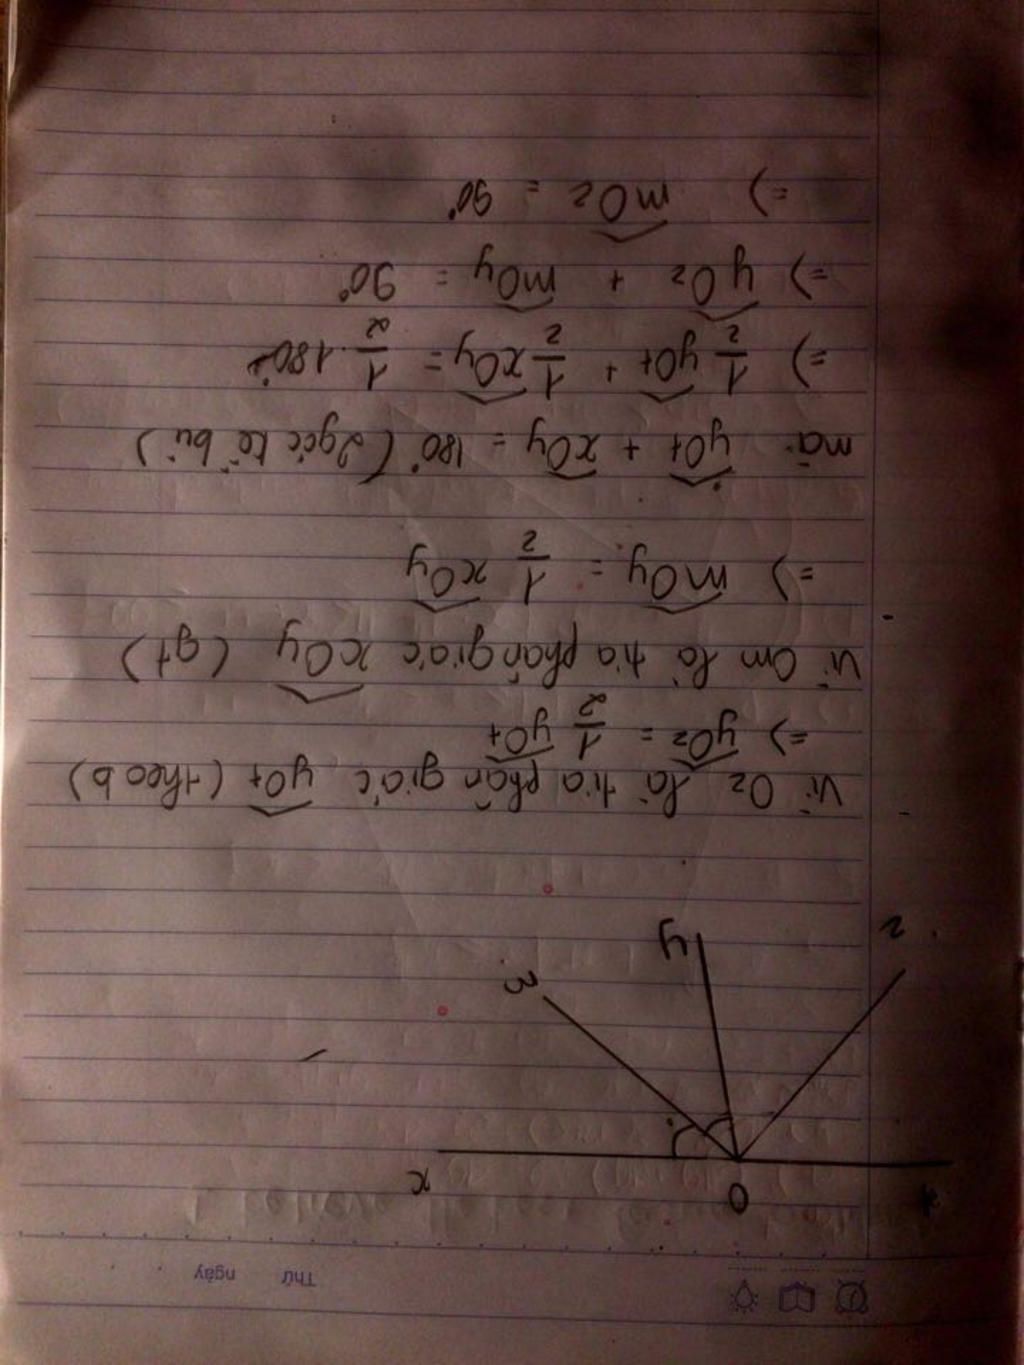 Thứ ngày
t O x
z y m
Vì Oz là tia phân giác yOt (theo b)
=> yOz = 1/2 yOt
Vì Om là tia phân giác xOy (gt)
=> mOy = 1/2 xOy
mà yOt + xOy = 180° (2 góc kề bù)
=> 1/2 yOt + 1/2 xOy = 1/2 . 180°
=> yOz + mOy = 90°
=> mOz = 90°